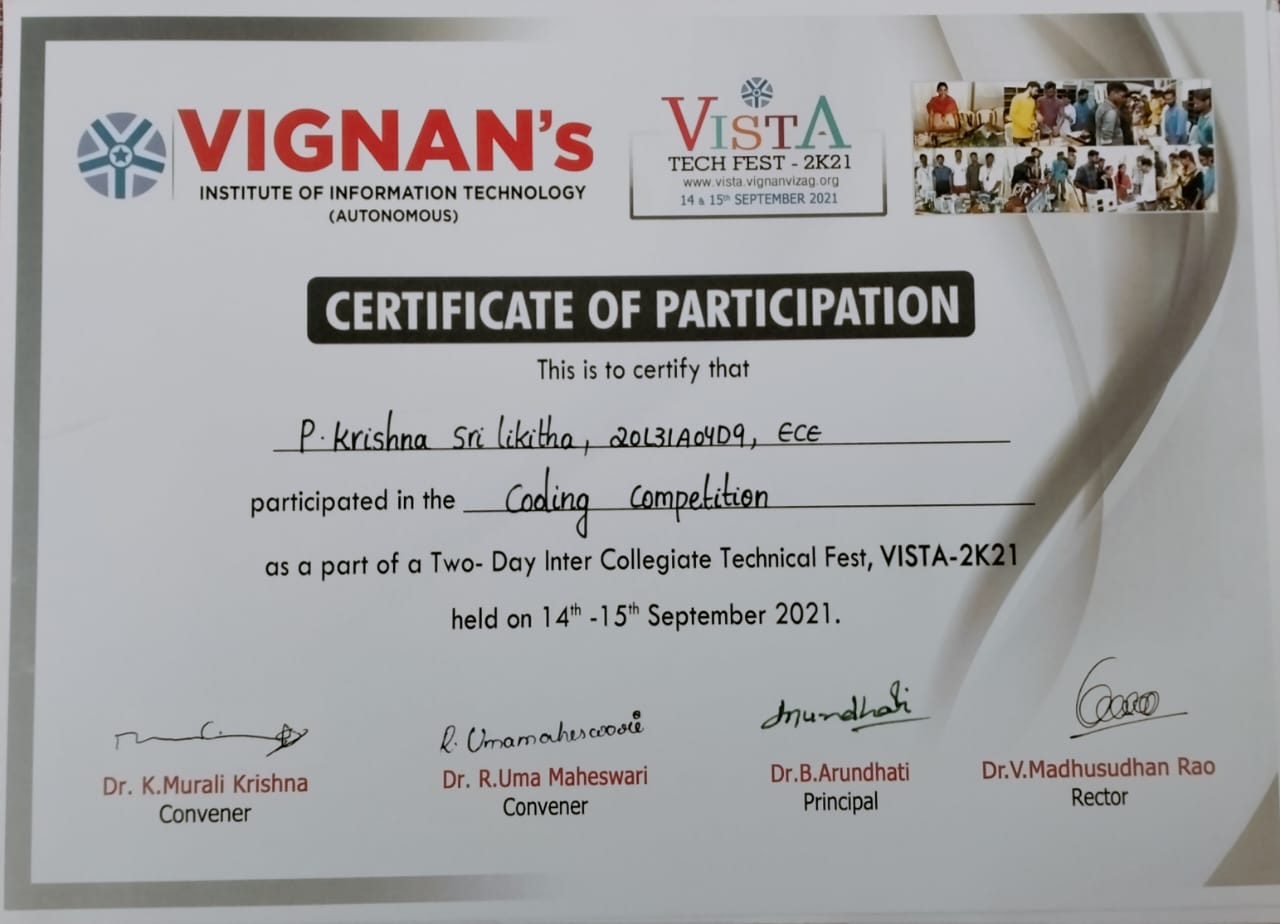 VIGNAN's
INSTITUTE OF INFORMATION TECHNOLOGY
(AUTONOMOUS)
VISTA
TECH FEST - 2K21
www.vista.vignanvizag.org
14 & 15th SEPTEMBER 2021
CERTIFICATE OF PARTICIPATION
This is to certify that
P. Krishna Sri likitha, 20L31A04D9, ECE
participated in the Coding Competition
as a part of a Two- Day Inter Collegiate Technical Fest, VISTA-2K21
held on 14th -15th September 2021.
R. Umamaheswari
Arundhati
Dr. K.Murali Krishna
Convener
Dr. R.Uma Maheswari
Convener
Dr.B.Arundhati
Principal
Dr.V.Madhusudhan Rao
Rector